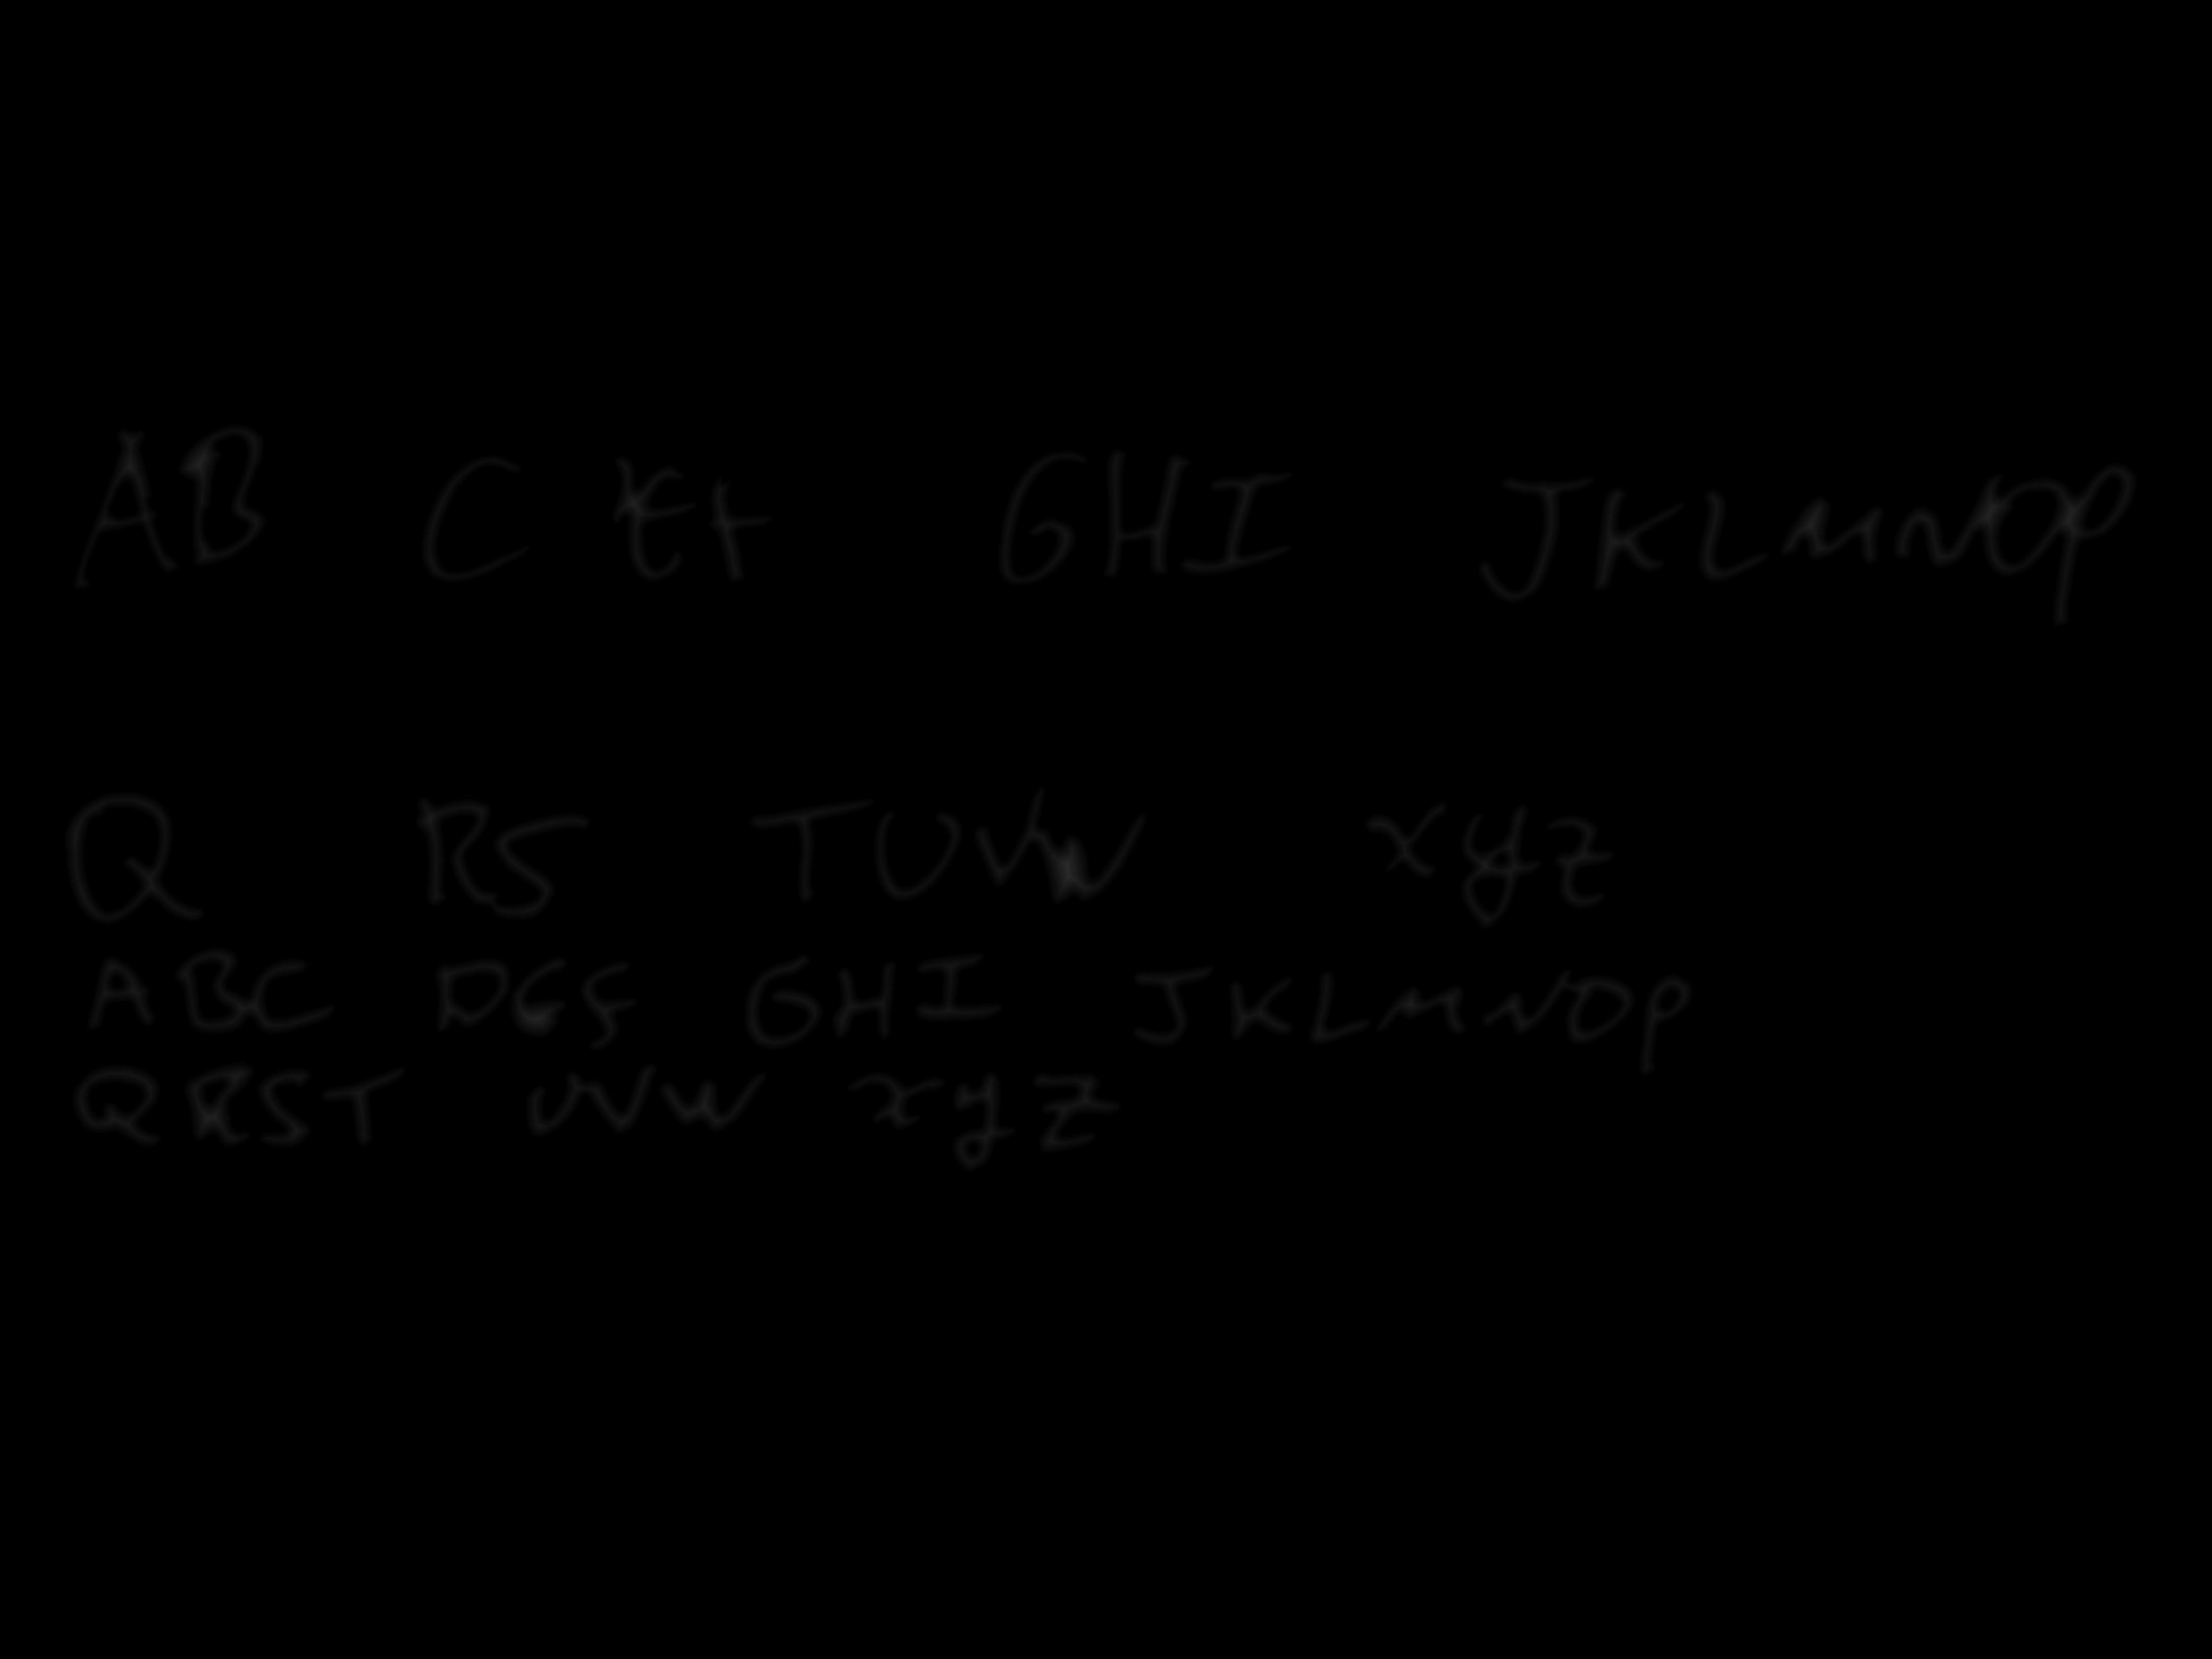 AB C Et GHI JKLMNOP
Q RS TUVW xyz
ABC DGS GHI JKLMNOP
QRST UVW xyz